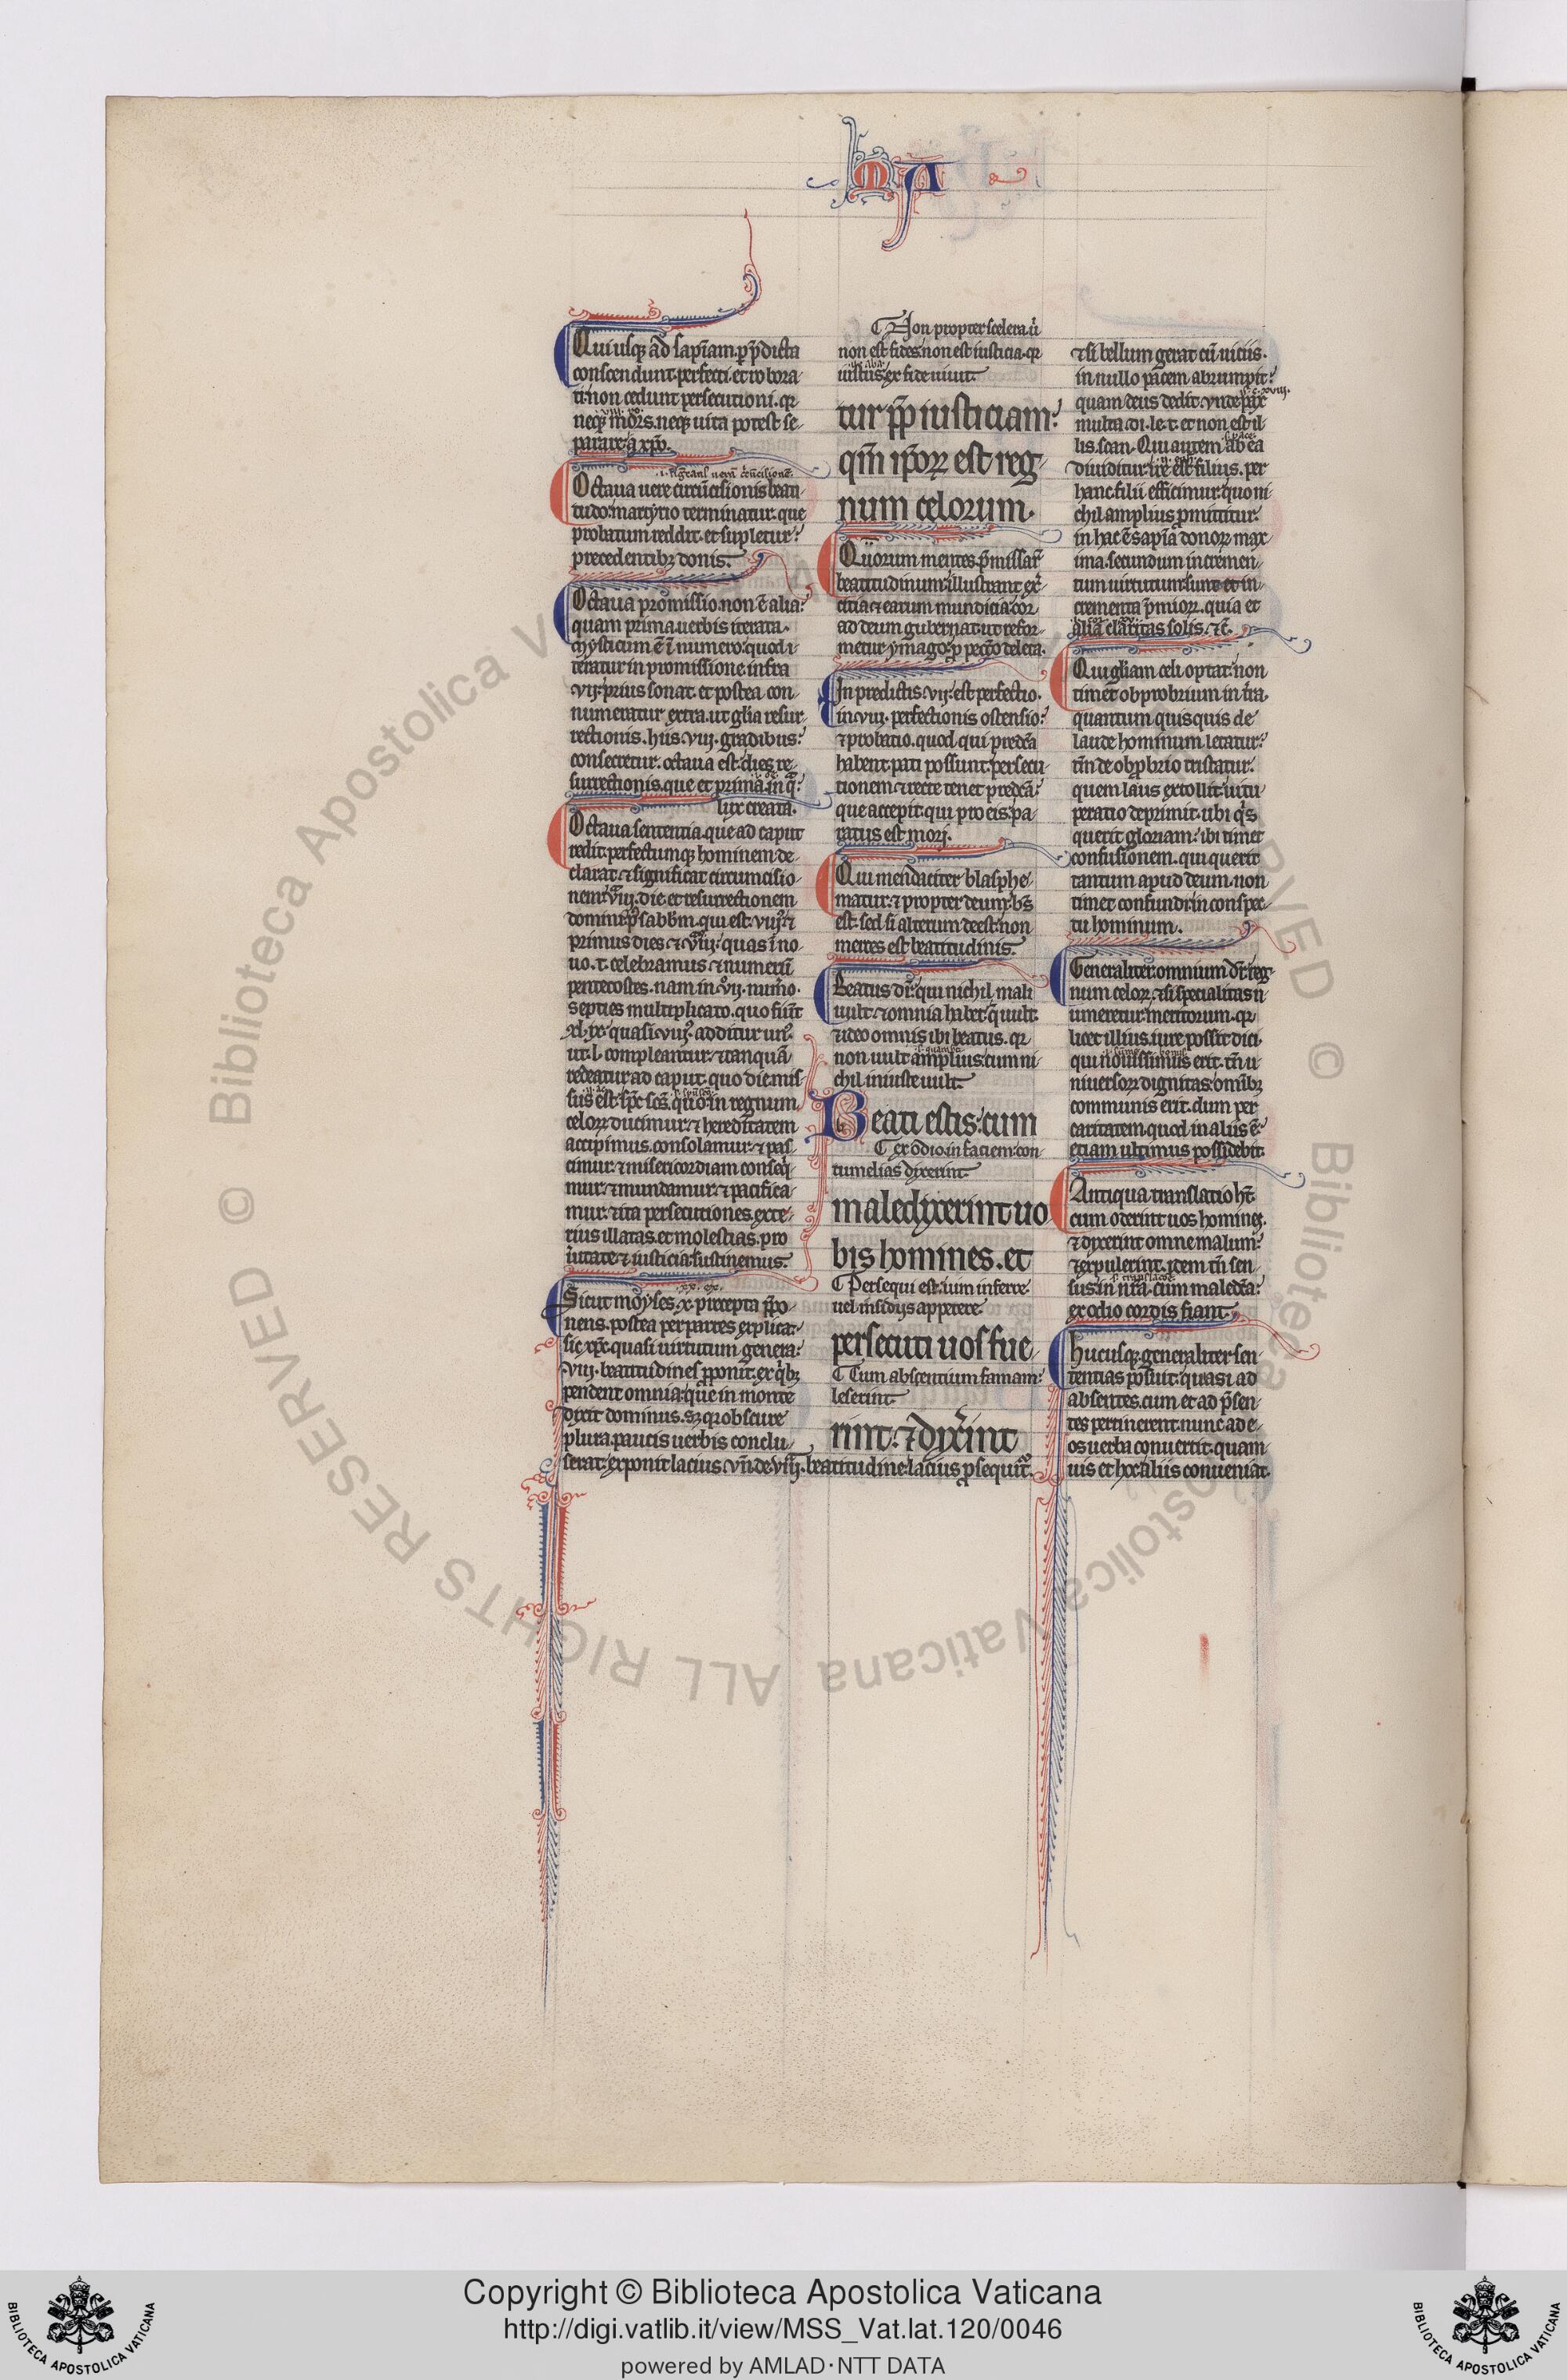 MA
Qui usq; ad sapiam. p p̄dicta
conscendunt. perfecti. et robora-
ti. non cedunt persecutioni. qr
neq; mors. neq; uita potest se-
parare a xp̄o.
Octaua uere circūcisionis beati-
tudo: martyrio terminatur. que
probatum reddit. et supletur:
precedentib; donis.
Octaua promissio. non ē alia:
quam prima. uerbis iterata.
Mysticum ē ī numero: quod i-
teratur in promissione. infra
.vij. prius sonat. et postea con-
numeratur extra. ut glia resur-
rectionis. hiis .viij. gradibus:
consecretur. octaua est dies re-
surrectionis. que et prima. in q̄:
lux creata.
Octaua sententia. que ad caput
redit. perfectumq; hominem de-
clarat. ⁊ significat circumcisio-
nem. viij. die. et resurrectionem
domini. p' sabb̄m. qui est. viij'. ⁊
primus dies ⁊ viij. quas ī no-
uo. t. celebramus ⁊ numerū
pentecostes. nam in .vij. num̄o.
septies multiplicato. quo fiūt
.xl. ix. quasi .viij'. additur un'.
ut .l. compleantur. ⁊ tanquā
redeatur ad caput. quo die mis-
sus est. sp̄c sc̄s. quo in regnum
celoꝝ ducimur. ⁊ hereditatem
accipimus. consolamur. ⁊ pas-
cimur. ⁊ misericordiam conseq̄-
mur. ⁊ mundamur. ⁊ pacifica-
mur. ⁊ ita persecutiones. exte-
rius illatas. et molestias. pro
u̇itate. ⁊ iusticia. sustinemus.
Sicut moyses .x. precepta p̄po-
nens. postea per partes explicat:
sic xp̄c. quasi uirtutum genera:
.viij. beatitudines p̄ponit. ex q̇b;
pendent omnia: que in monte
dixit dominus. s; qr obscure
plura. paucis uerbis conclu-
serat: exponit lacius. vn̄ de viij. beatitudine: lacius p̄sequit̄.
Non propter scelera. ú
non est fides: non est iusticia. qr
iustus ex fide uiuit.
tur p̄p iusticiam:
qm̄ ip̄oꝝ est reg-
num celorum.
Quorum mentes. p̄missar̄
beatitudinum: illustrant ex-
citia ⁊ earum mundicia: cor
ad deum gubernat. ut refor-
metur ymago. p pecc̄o deleta.
In predictis .vij. est perfectio.
in .viij. perfectionis ostensio:
⁊ probatio. quod qui predc̄a
habent. pati possunt. persecu-
tionem. ⁊ recte tenet predc̄a:
que accepit. qui pro eis. pa-
ratus est mori.
Qui mendaciter blasphe-
matur. ⁊ propter deum: bs̄
est. sed si alterum deest: non
meres est beatitudinis.
Beatus dr̄. qui nichil mali
uult. ⁊ omnia habet. q̄ uult.
⁊ ideo omnis ibi beatus. qr
non uult amplius. cum ni-
chil iniuste uult.
Beati estis: cum
ex odio. in faciem. con-
tumelias dixerint.
maledixerint uo
bis homines. et
Persequi est: uim inferre.
uel insidijs appetere.
persecuti uos fue-
Cum absentium famam:
leserint.
rint. ⁊ dix̄int
⁊ si bellum gerat cū uiciis.
in nullo pacem abrumpit:
quam deus dedit. vnde pax
multa. di. le. t. et non est il-
lis. scan. Qui autem ab ea
diuiditur: ire est filius. per
hanc. filii efficimur. quo ni-
chil amplius p̄mittitur.
in hac ē sapīa. donoꝝ max-
ima. secundum incremen-
tum uirtutum: sunt et in-
crementa p̄mioꝝ. quia et
alia claritas solis. ⁊c.
Qui gliam celi optat: non
timet obprobrium in t̄ra.
quantum quisquis de
laude hominum letatur:
tm̄ de obp̄brio tristatur.
quem laus extollit: uitu-
peratio deprimit. ubi q̇s
querit gloriam: ibi timet
confusionem. qui querit
tantum apud deum. non
timet confundi: in conspec-
tu hominum.
Generaliter: omnium dr̄. reg-
num celoꝝ. ⁊ si specialitas n̄
umeretur: meritorum. qr
licet illius. iure possit dici.
qui nouissimus erit. tn̄ u-
niuersoꝝ dignitas: omīb;
communis erit. dum per
caritatem. quod in aliis ē:
etiam ultimus possidebit.
Antiqua translatio hr̄.
cum oderint uos homines.
⁊ dixerint omne malum:
⁊ expulerint. idem tn̄ sen-
sus. in nr̄a. cum maledc̄a:
ex odio cordis fiant.
Hucusq; generaliter sen-
tentias posuit: quasi ad
absentes. cum et ad p̄sen-
tes pertinerent. nunc ad e-
os uerba conuertit. quam-
uis et hoc aliis conueniat.
© Biblioteca Apostolica Vaticana ALL RIGHTS RESERVED
Copyright © Biblioteca Apostolica Vaticana
http://digi.vatlib.it/view/MSS_Vat.lat.120/0046
powered by AMLAD·NTT DATA
BIBLIOTECA APOSTOLICA VATICANA
BIBLIOTECA APOSTOLICA VATICANA